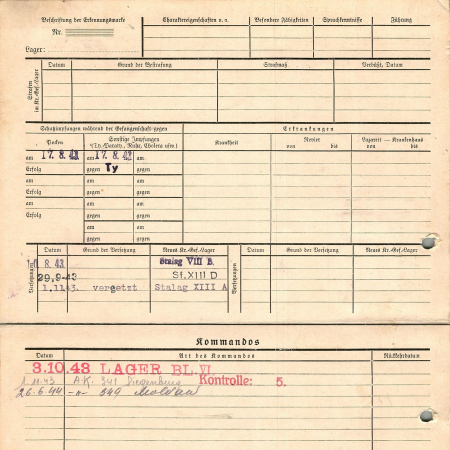 Beschriftung der Erkennungsmarke
Nr.
Lager:
Charaktereigenschaften u. s.
Besondere Fähigkeiten
Sprachkenntnisse
Führung
Strafen im Kr.-Gef.-Lager
Datum
Grund der Bestrafung
Strafmaß
Verbüßt, Datum
Schutzimpfungen während der Gefangenschaft gegen
Erkrankungen
Pocken
Sonstige Impfungen
(Ty. Parat., Ruhr, Cholera usw.)
Krankheit
Revier
von bis
Lazarett — Krankenhaus
von bis
am 17. 8. 43 am 17. 8. 43 am
Erfolg gegen Ty gegen
am am am
Erfolg gegen gegen
am am am
Erfolg gegen gegen
am am
gegen gegen
Versetzungen
Datum
Grund der Versetzung
Neues Kr.-Gef.-Lager
Datum
Grund der Versetzung
Neues Kr.-Gef.-Lager
8. 43 Stalag VIII B.
29.9-43 St. XIII D
1.11 43. vergetzt Stalag XIII A
Kommandos
Datum
Art des Kommandos
Rückkehrdatum
3.10.43 LAGER BL. VI
1.11.43 A.K. 341 Kontrolle: 5.
26.6.44 -"- 349